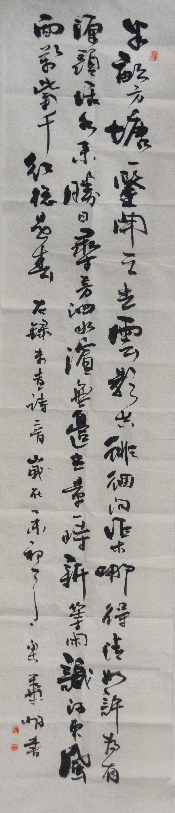 半畝方塘一鑒開天光雲影共徘徊問渠那得清如許為有
源頭活水來勝日尋芳泗水濱無邊光景一時新等閑識得東風
面萬紫千紅總是春 右錄朱熹詩二首 歲在乙未初 書